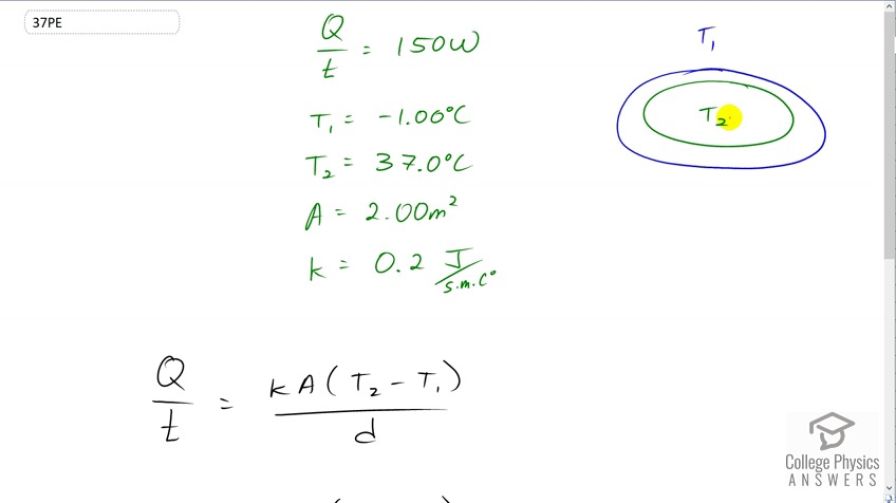 37PE
Q/t = 150W
T₁ = -1.00°C
T₂ = 37.0°C
A = 2.00m²
k = 0.2 J/s.m.C°
T₁
T₂
Q/t = kA(T₂ - T₁)/d
College Physics
ANSWERS